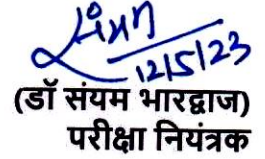 संयम
12/5/23
(डॉ संयम भारद्वाज)
परीक्षा नियंत्रक